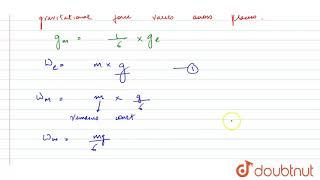 gravitational force varies across planets.
g_m = 1/6 × g_e
W_e = m × g —①
W_m = m × g/6
remains const
W_m = mg/6
doubtnut